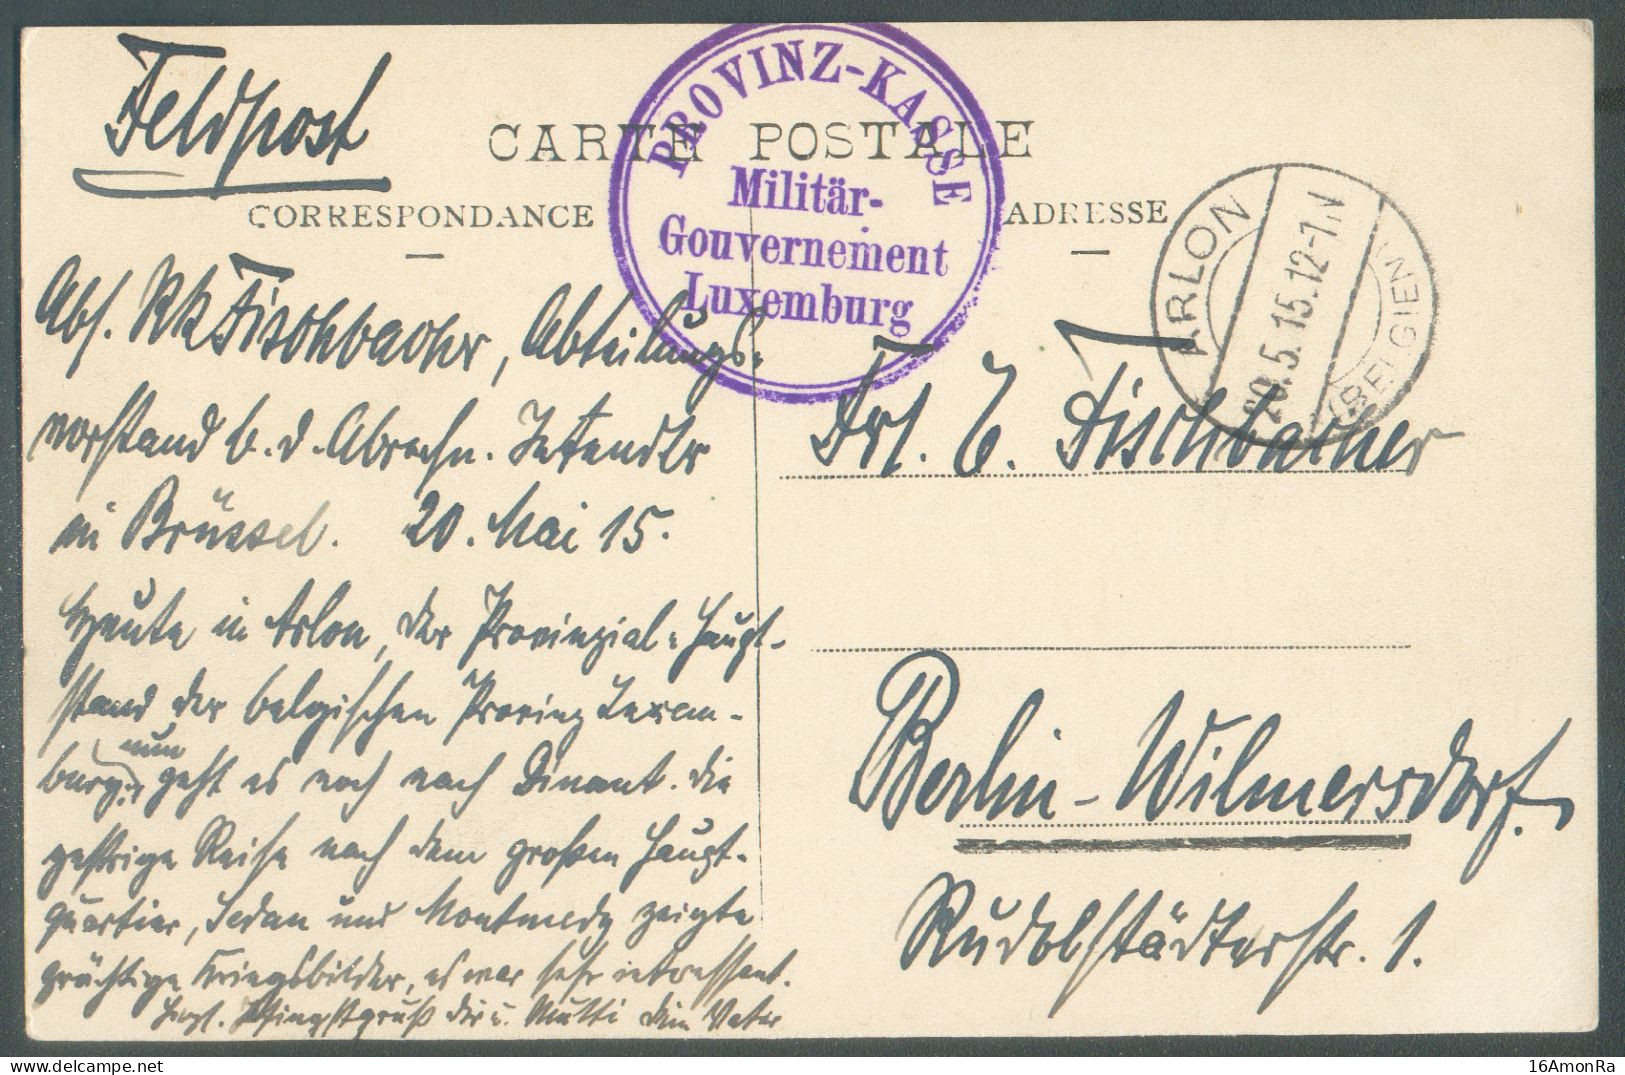 Feldpost
CARTE POSTALE
CORRESPONDANCE
ADRESSE
PROVINZ-KASSE
Militär-
Gouvernement
Luxemburg
ARLON
20.5.15.12-1N
(BELGIEN)
Abs. Fischbacher, Abteilungs-
vorstand b. d. Abrechn. Intendtr
in Brüssel. 20. Mai 15.
Heute in Arlon, der Provinzial-Haupt-
stand der belgischen Provinz Luxem-
burg, nun geht es noch nach Dinant. Die
gestrige Reise nach dem großen Haupt-
quartier, Sedan und Montmedy zeigte
prächtige Kriegsbilder, es war sehr interessant.
Herzl. Pfingstgruß Dir u. Mutti Dein Vater
Frl. E. Fischbacher
Berlin-Wilmersdorf.
Rudolstädterstr. 1.
16AmonRa